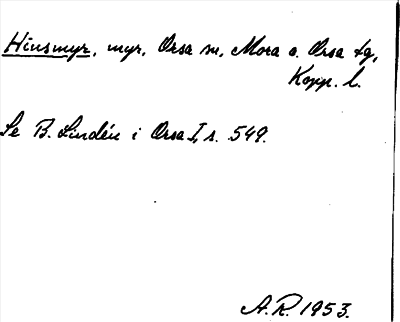 Hinsmyr, myr, Orsa sn, Mora o. Orsa tg,
Kopp. l.
Se B. Lindén i Orsa I, s. 549.
A. R. 1953.